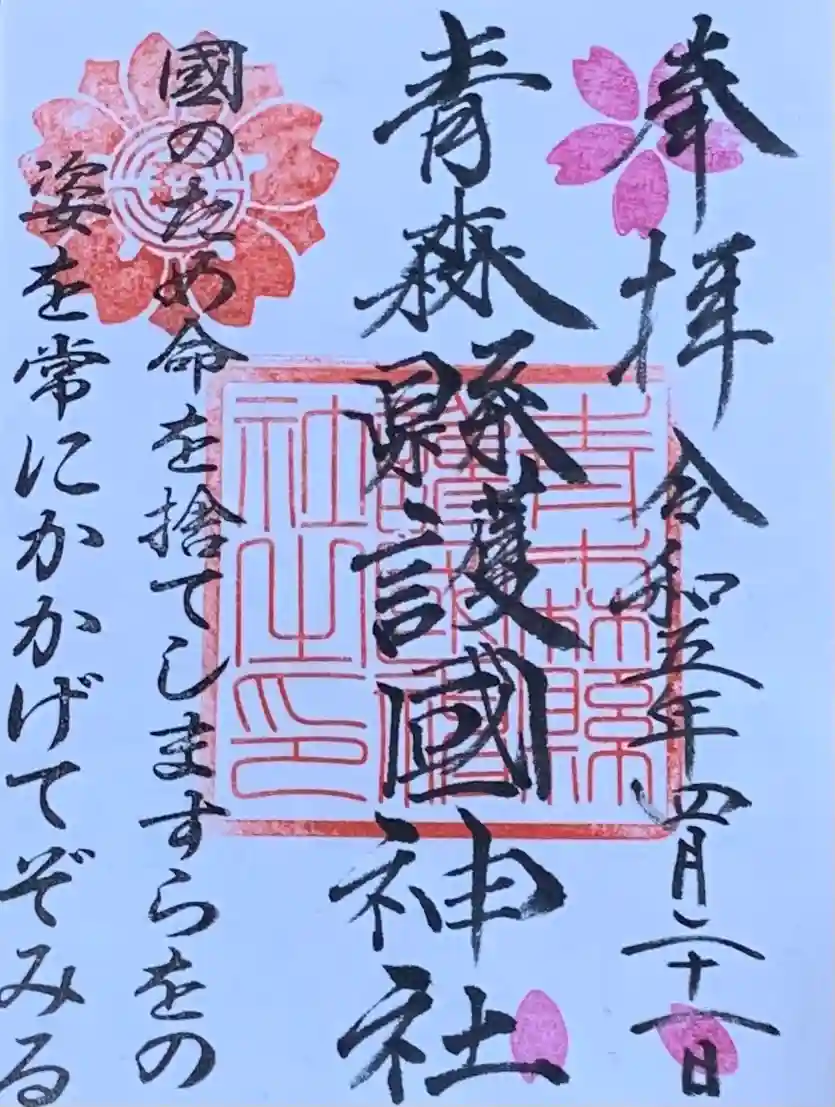 奉拝 令和五年四月二十一日
青森縣護國神社
青森縣
護國神
社之印
國のため命を捨てしますらをの
姿を常にかかげてぞみる